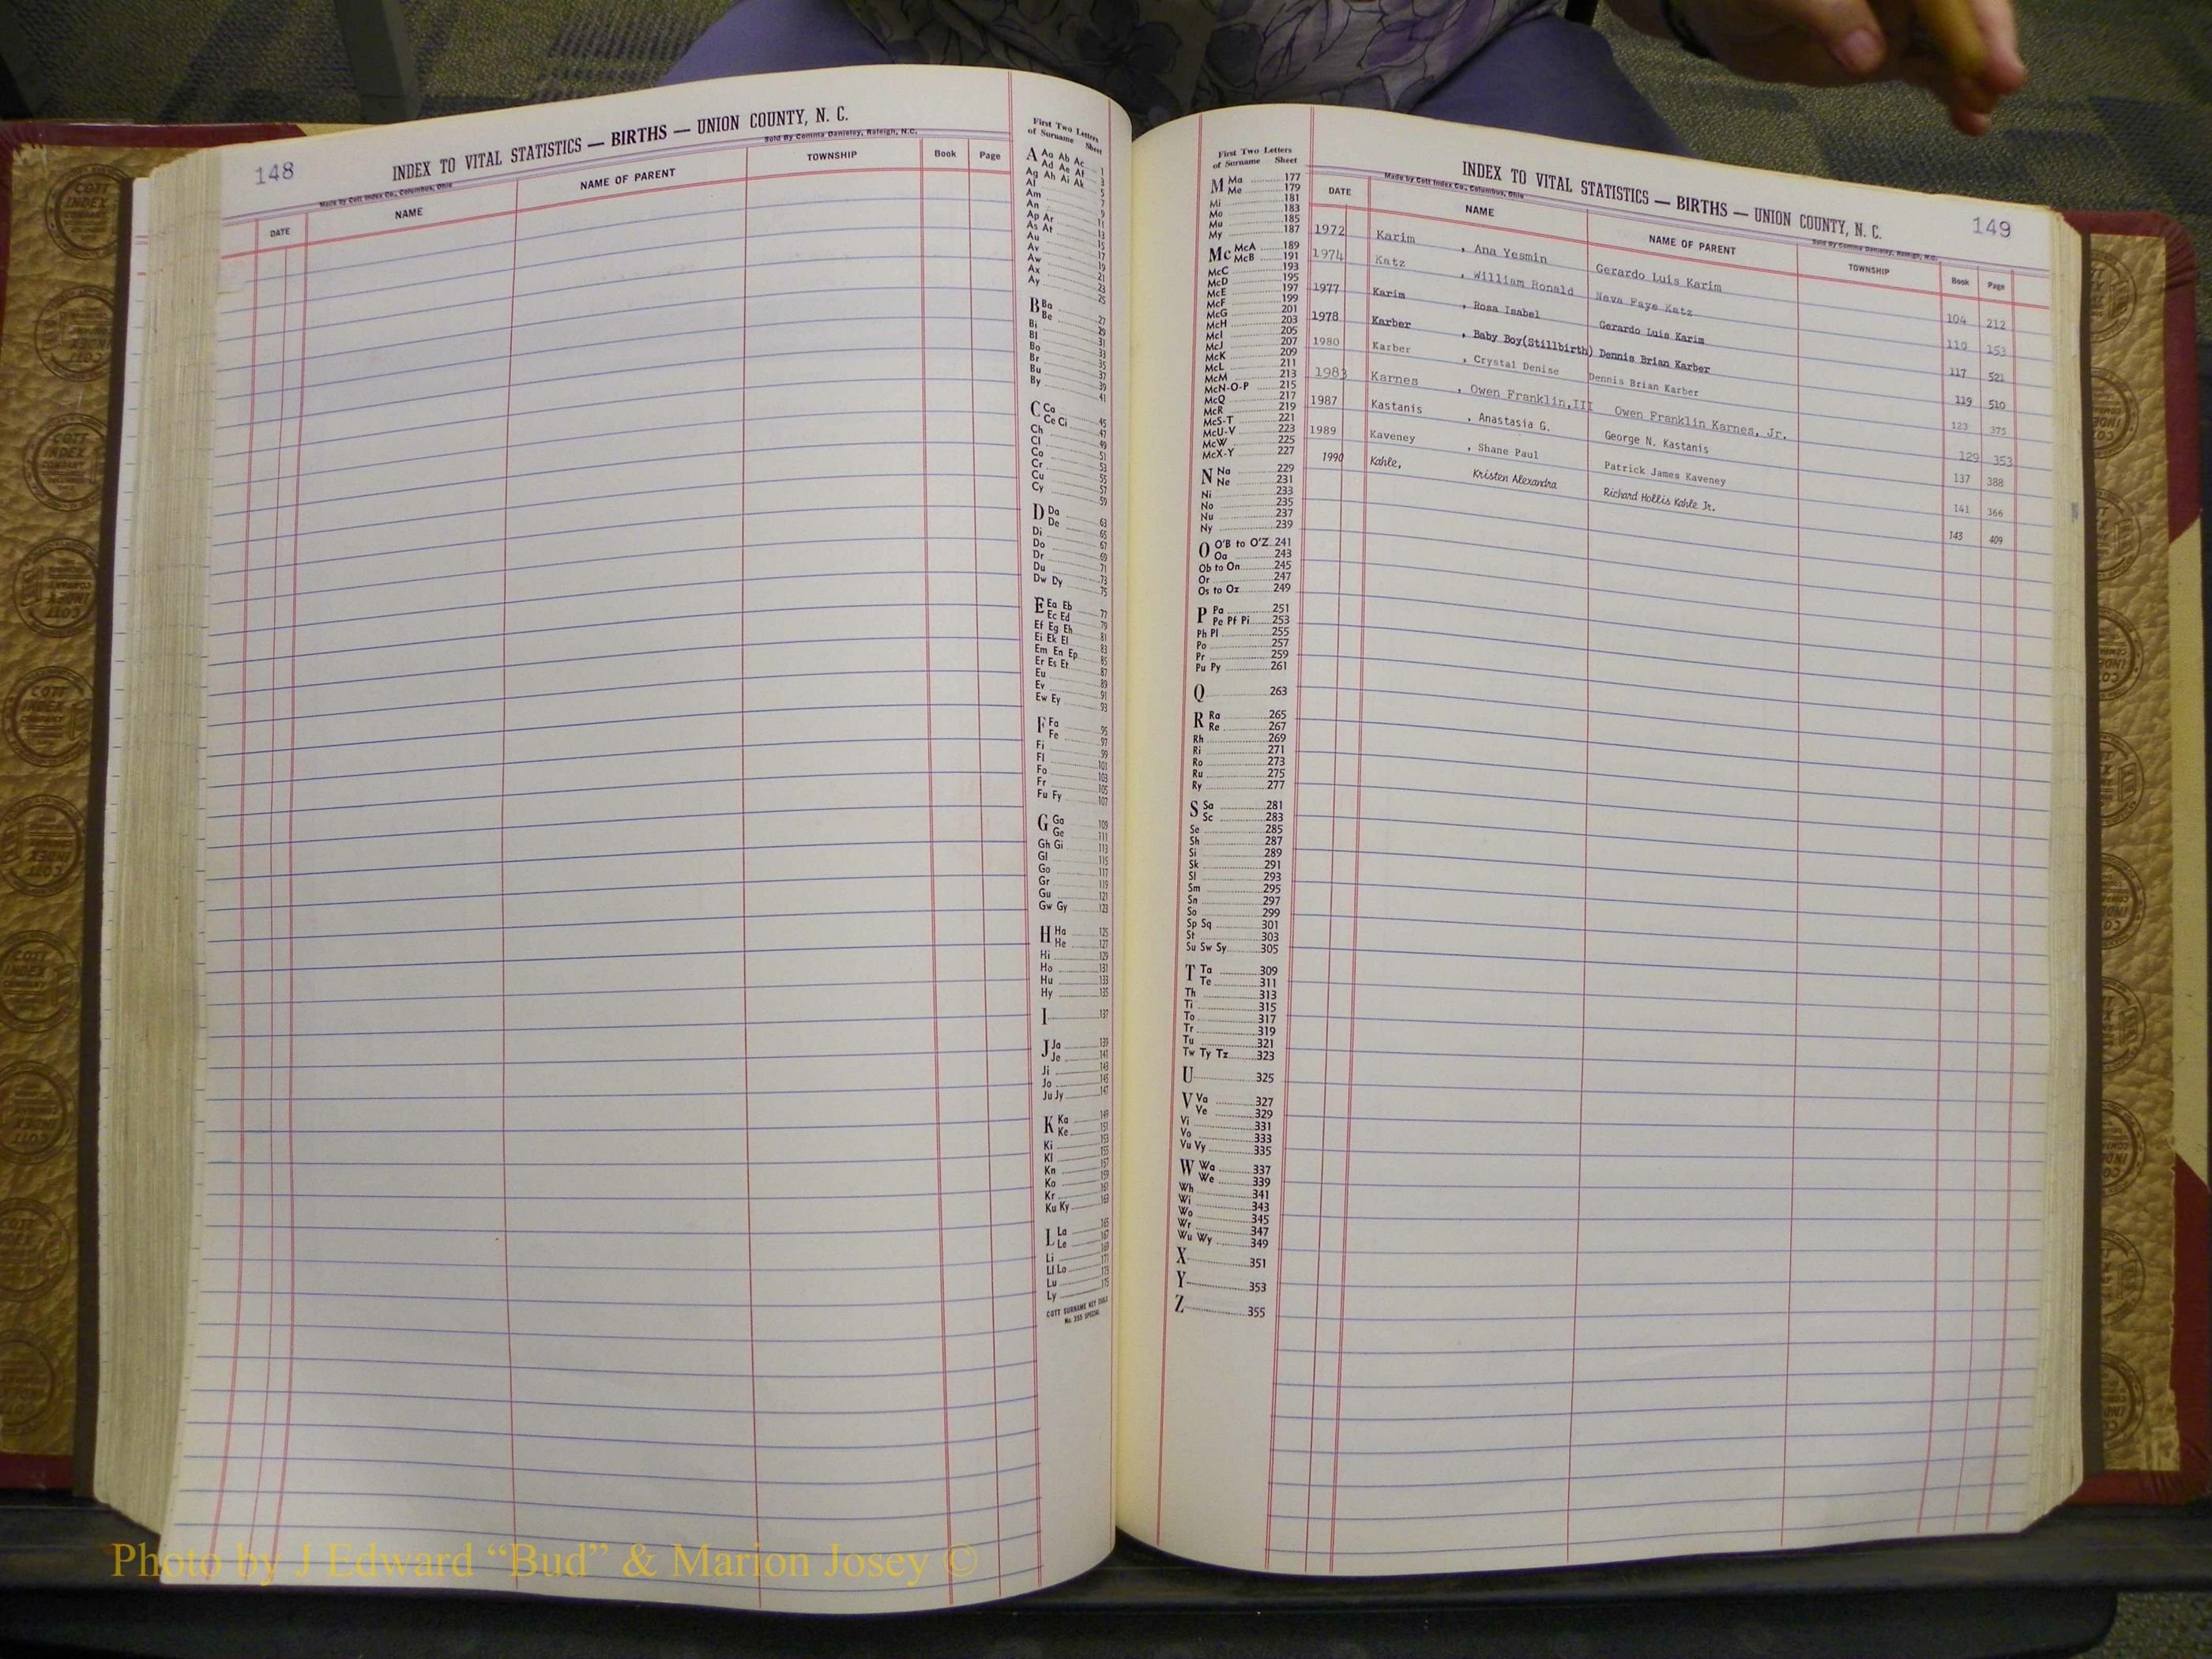 148
INDEX TO VITAL STATISTICS — BIRTHS — UNION COUNTY, N. C.
Made by Cott Index Co., Columbus, Ohio
Sold By Comma Danieley, Raleigh, N.C.
DATE NAME NAME OF PARENT TOWNSHIP Book Page
First Two Letters
of Surname Sheet
A Aa Ab Ac 1
Ad Ae Af 3
Ag Ah Ai Ak 5
Al 7
Am 9
An 11
Ap Ar 13
As At 15
Au 17
Av 19
Aw 21
Ax 23
Ay 25
B Ba 27
Be 29
Bi 31
Bl 33
Bo 35
Br 37
Bu 39
By 41
C Ca 45
Ce Ci 47
Ch 49
Cl 51
Co 53
Cr 55
Cu 57
Cy 59
D Da 63
De 65
Di 67
Do 69
Dr 71
Du 73
Dw Dy 75
E Ea Eb 77
Ec Ed 79
Ef Eg Eh 81
Ei Ek El 83
Em En Ep 85
Er Es Et 87
Eu 89
Ev 91
Ew Ey 93
F Fa 95
Fe 97
Fi 99
Fl 101
Fo 103
Fr 105
Fu Fy 107
G Ga 109
Ge 111
Gh Gi 113
Gl 115
Go 117
Gr 119
Gu 121
Gw Gy 123
H Ha 125
He 127
Hi 129
Ho 131
Hu 133
Hy 135
I 137
J Ja 139
Je 141
Ji 143
Jo 145
Ju Jy 147
K Ka 149
Ke 151
Ki 153
Kl 155
Kn 157
Ko 159
Kr 161
Ku Ky 163
L La 165
Le 167
Li 169
Ll Lo 171
Lu 173
Ly 175
COTT SURNAME KEY TABLE
No. 355 SPECIAL
First Two Letters
of Surname Sheet
M Ma 177
Me 179
Mi 181
Mo 183
Mu 185
My 187
Mc McA 189
McB 191
McC 193
McD 195
McE 197
McF 199
McG 201
McH 203
McI 205
McJ 207
McK 209
McL 211
McM 213
McN-O-P 215
McQ 217
McR 219
McS-T 221
McU-V 223
McW 225
McX-Y 227
N Na 229
Ne 231
Ni 233
No 235
Nu 237
Ny 239
O O'B to O'Z 241
Oa 243
Ob to On 245
Or 247
Os to Oz 249
P Pa 251
Pe Pf Pi 253
Ph Pl 255
Po 257
Pr 259
Pu Py 261
Q 263
R Ra 265
Re 267
Rh 269
Ri 271
Ro 273
Ru 275
Ry 277
S Sa 281
Sc 283
Se 285
Sh 287
Si 289
Sk 291
Sl 293
Sm 295
Sn 297
So 299
Sp Sq 301
St 303
Su Sw Sy 305
T Ta 309
Te 311
Th 313
Ti 315
To 317
Tr 319
Tu 321
Tw Ty Tz 323
U 325
V Va 327
Ve 329
Vi 331
Vo 333
Vu Vy 335
W Wa 337
We 339
Wh 341
Wi 343
Wo 345
Wr 347
Wu Wy 349
X 351
Y 353
Z 355
INDEX TO VITAL STATISTICS — BIRTHS — UNION COUNTY, N. C.
149
Made by Cott Index Co., Columbus, Ohio
Sold By Comma Danieley, Raleigh, N.C.
DATE NAME NAME OF PARENT TOWNSHIP Book Page
1972 Karim , Ana Yesmin Gerardo Luis Karim 104 212
1974 Katz , William Ronald Neva Faye Katz 110 153
1977 Karim , Rosa Isabel Gerardo Luis Karim 117 521
1978 Karber , Baby Boy(Stillbirth) Dennis Brian Karber 119 510
1980 Karber , Crystal Denise Dennis Brian Karber 123 375
1983 Karnes , Owen Franklin,III Owen Franklin Karnes, Jr. 129 353
1987 Kastanis , Anastasia G. George N. Kastanis 137 388
1989 Kaveney , Shane Paul Patrick James Kaveney 141 366
1990 Kahle, Kristen Alexandra Richard Hollis Kahle Jr. 143 409
COTT INDEX COMPANY
Photo by J Edward “Bud” & Marion Josey ©